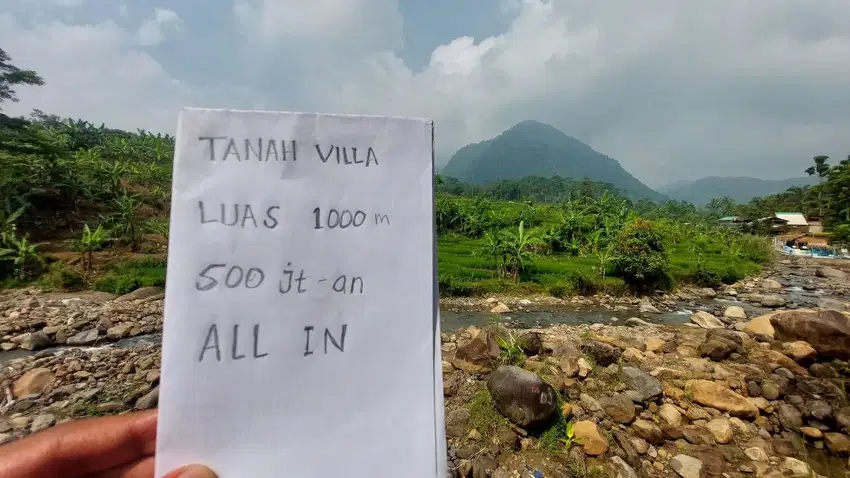 TANAH VILLA
LUAS 1000 m
500 jt-an
ALL IN